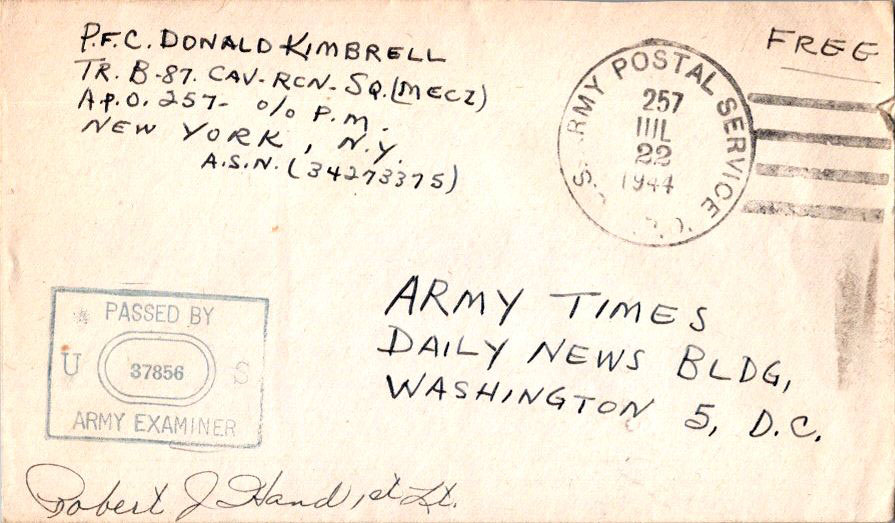 P.F.C. DONALD KIMBRELL
TR. B-87. CAV-RCN-SQ.(MECZ)
A.P.O. 257- c/o P.M.
NEW YORK, N.Y.
A.S.N. (34273375)
FREE
U.S. ARMY POSTAL SERVICE
A.P.O.
257
JUL
22
1944
ARMY TIMES
DAILY NEWS BLDG,
WASHINGTON 5, D.C.
PASSED BY
U 37856 S
ARMY EXAMINER
Robert J Hand, 1st Lt.